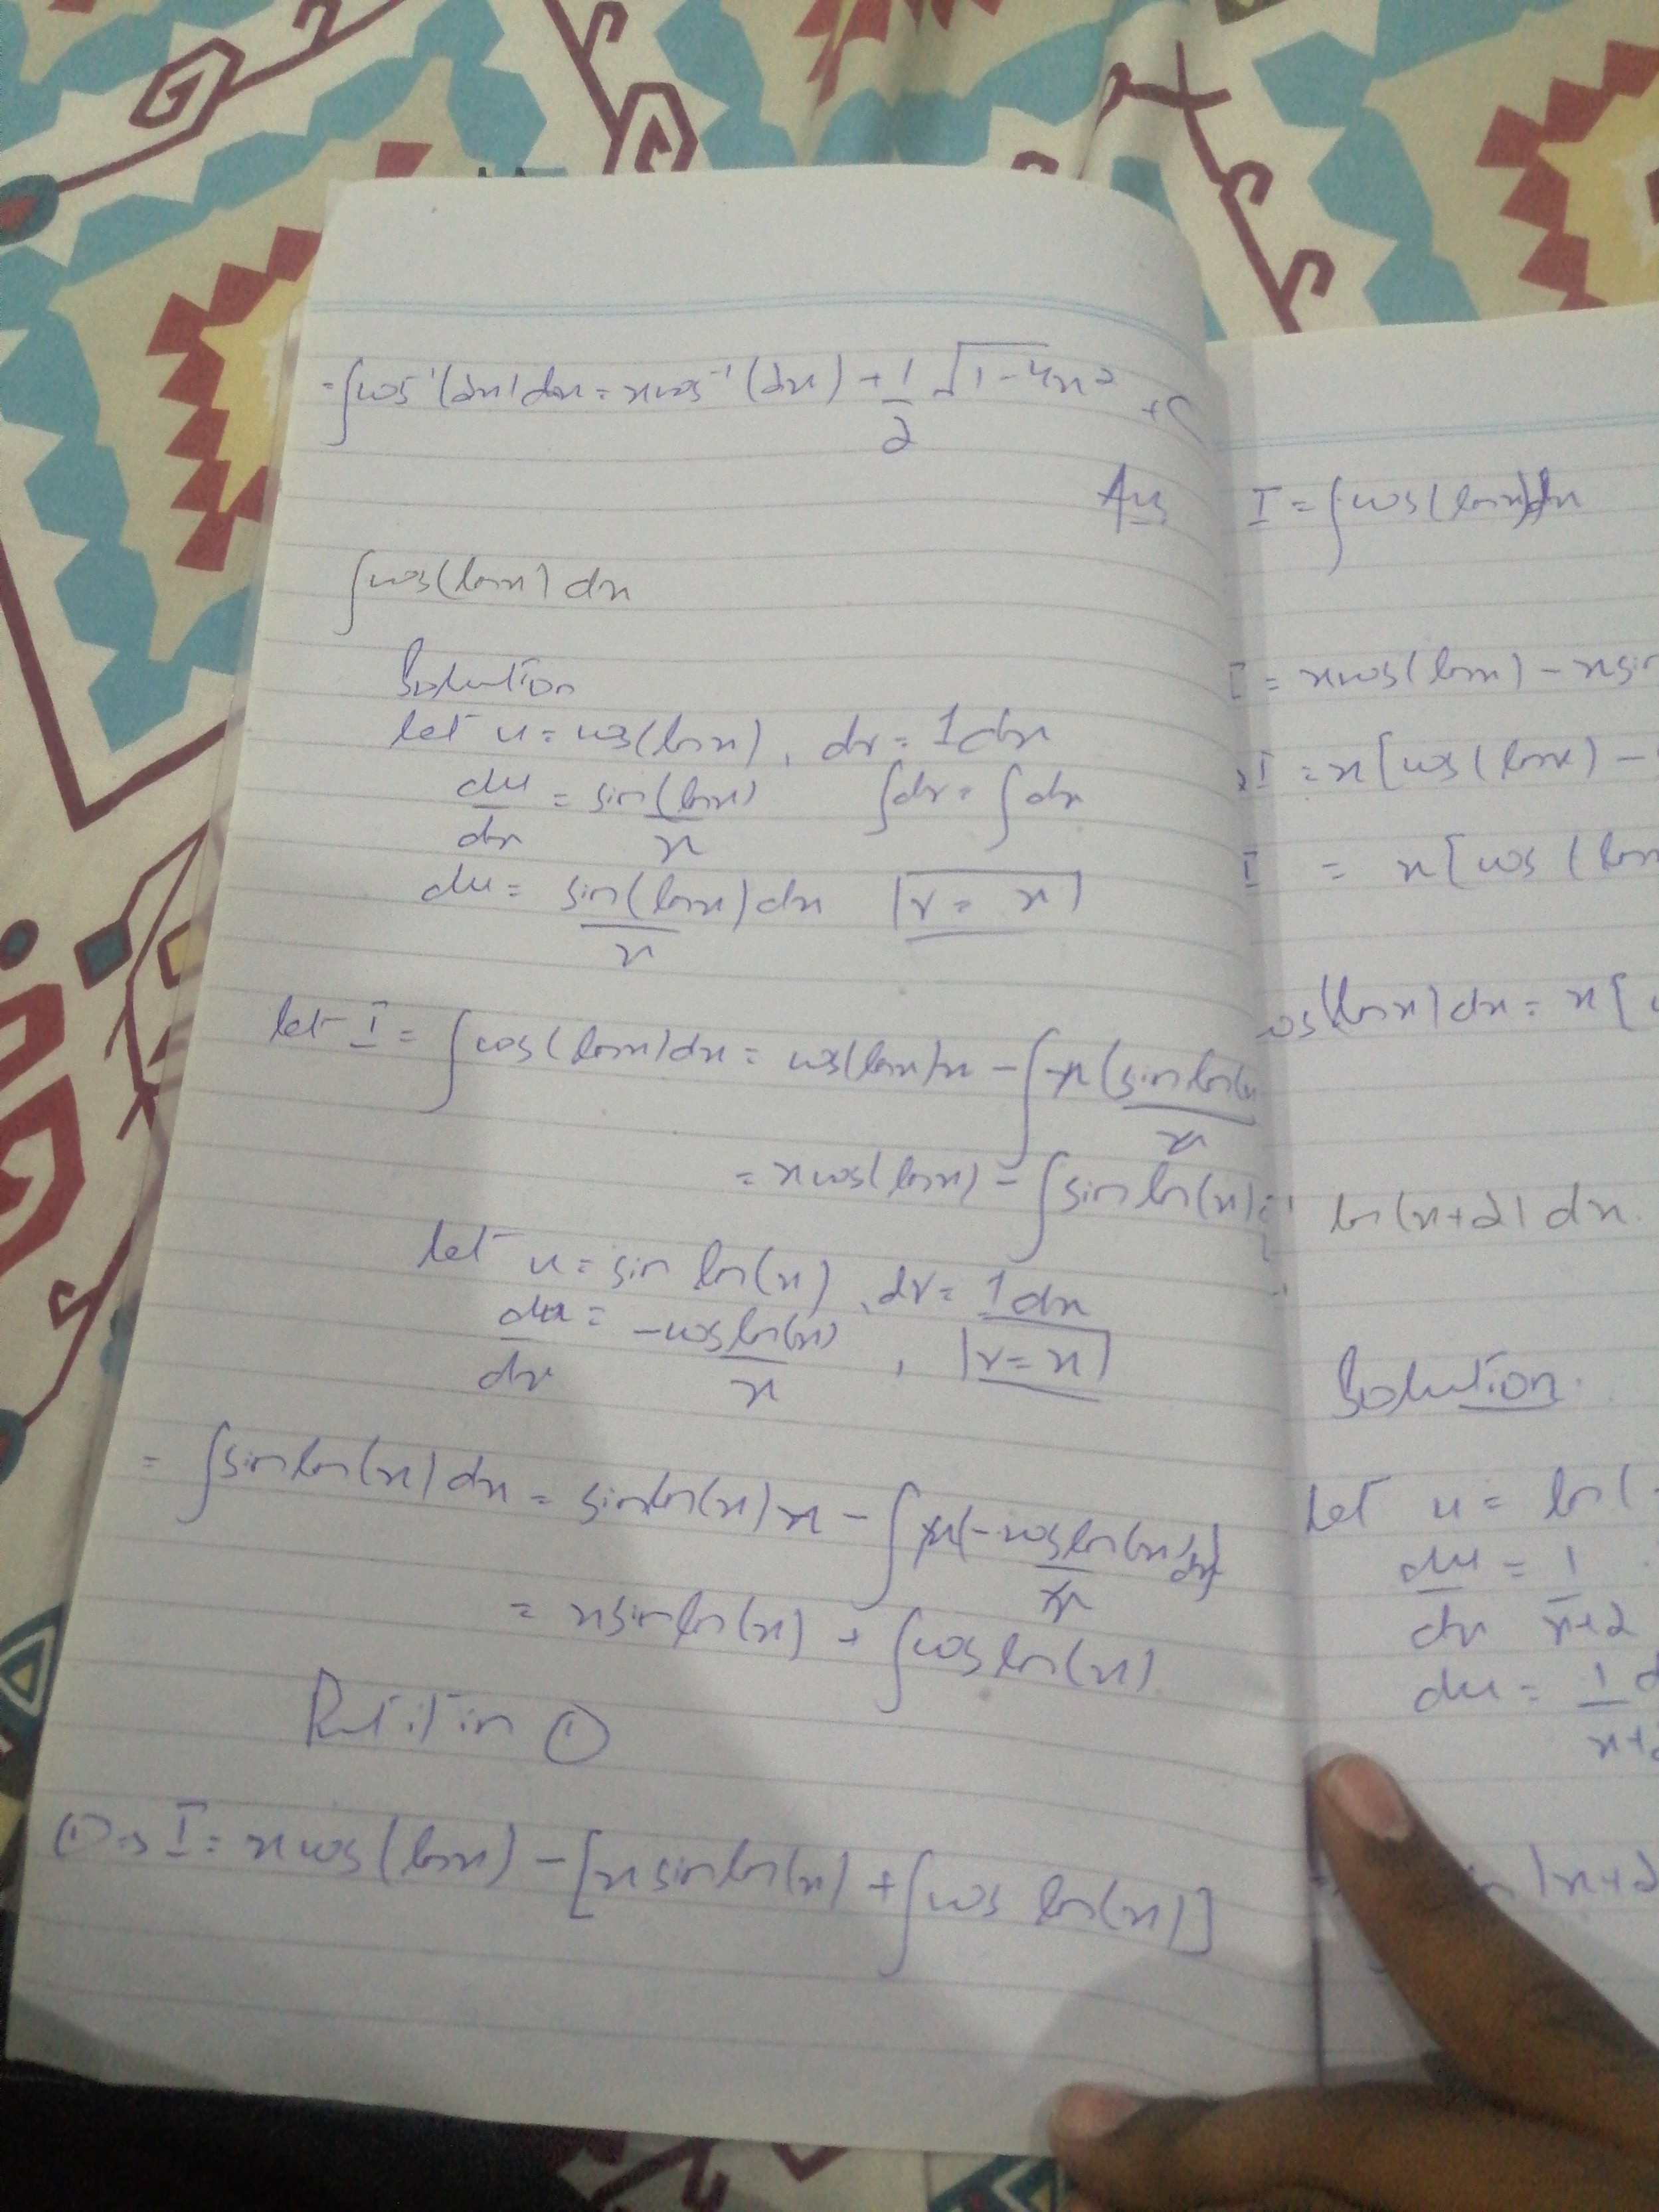 =∫cos⁻¹(2x)dx = xcos⁻¹(2x) + 1/2 √1-4x² +C
Ans
∫cos(lnx) dx
Solution
let u = cos(lnx), dv = 1dx
du/dx = sin(lnx)/x ∫dv = ∫dx
du = sin(lnx)dx/x |v = x|
let I = ∫cos(lnx)dx = cos(lnx)x - ∫x(sinln(x/x
= xcos(lnx) - ∫sinln(x)
let u = sin ln(x), dv = 1dx
du/dx = -cosln(x)/x, |v=x|
= ∫sinln(x)dx = sinln(x)x - ∫x(-cosln(x)/x dx)
= xsinln(x) + ∫cosln(x)
Put it in ①
①⇒ I = xcos(lnx) - [xsinln(x) + ∫cos ln(x)]
I = ∫cos(lnx)dx
I = xcos(lnx) - xsin
I = x[cos(lnx) -
I = x[cos(ln
os(lnx)dx = x[
ln(x+2)dx.
Solution.
let u = ln(
du/dx = 1/x+2
du = 1/x+2 d
|x+2